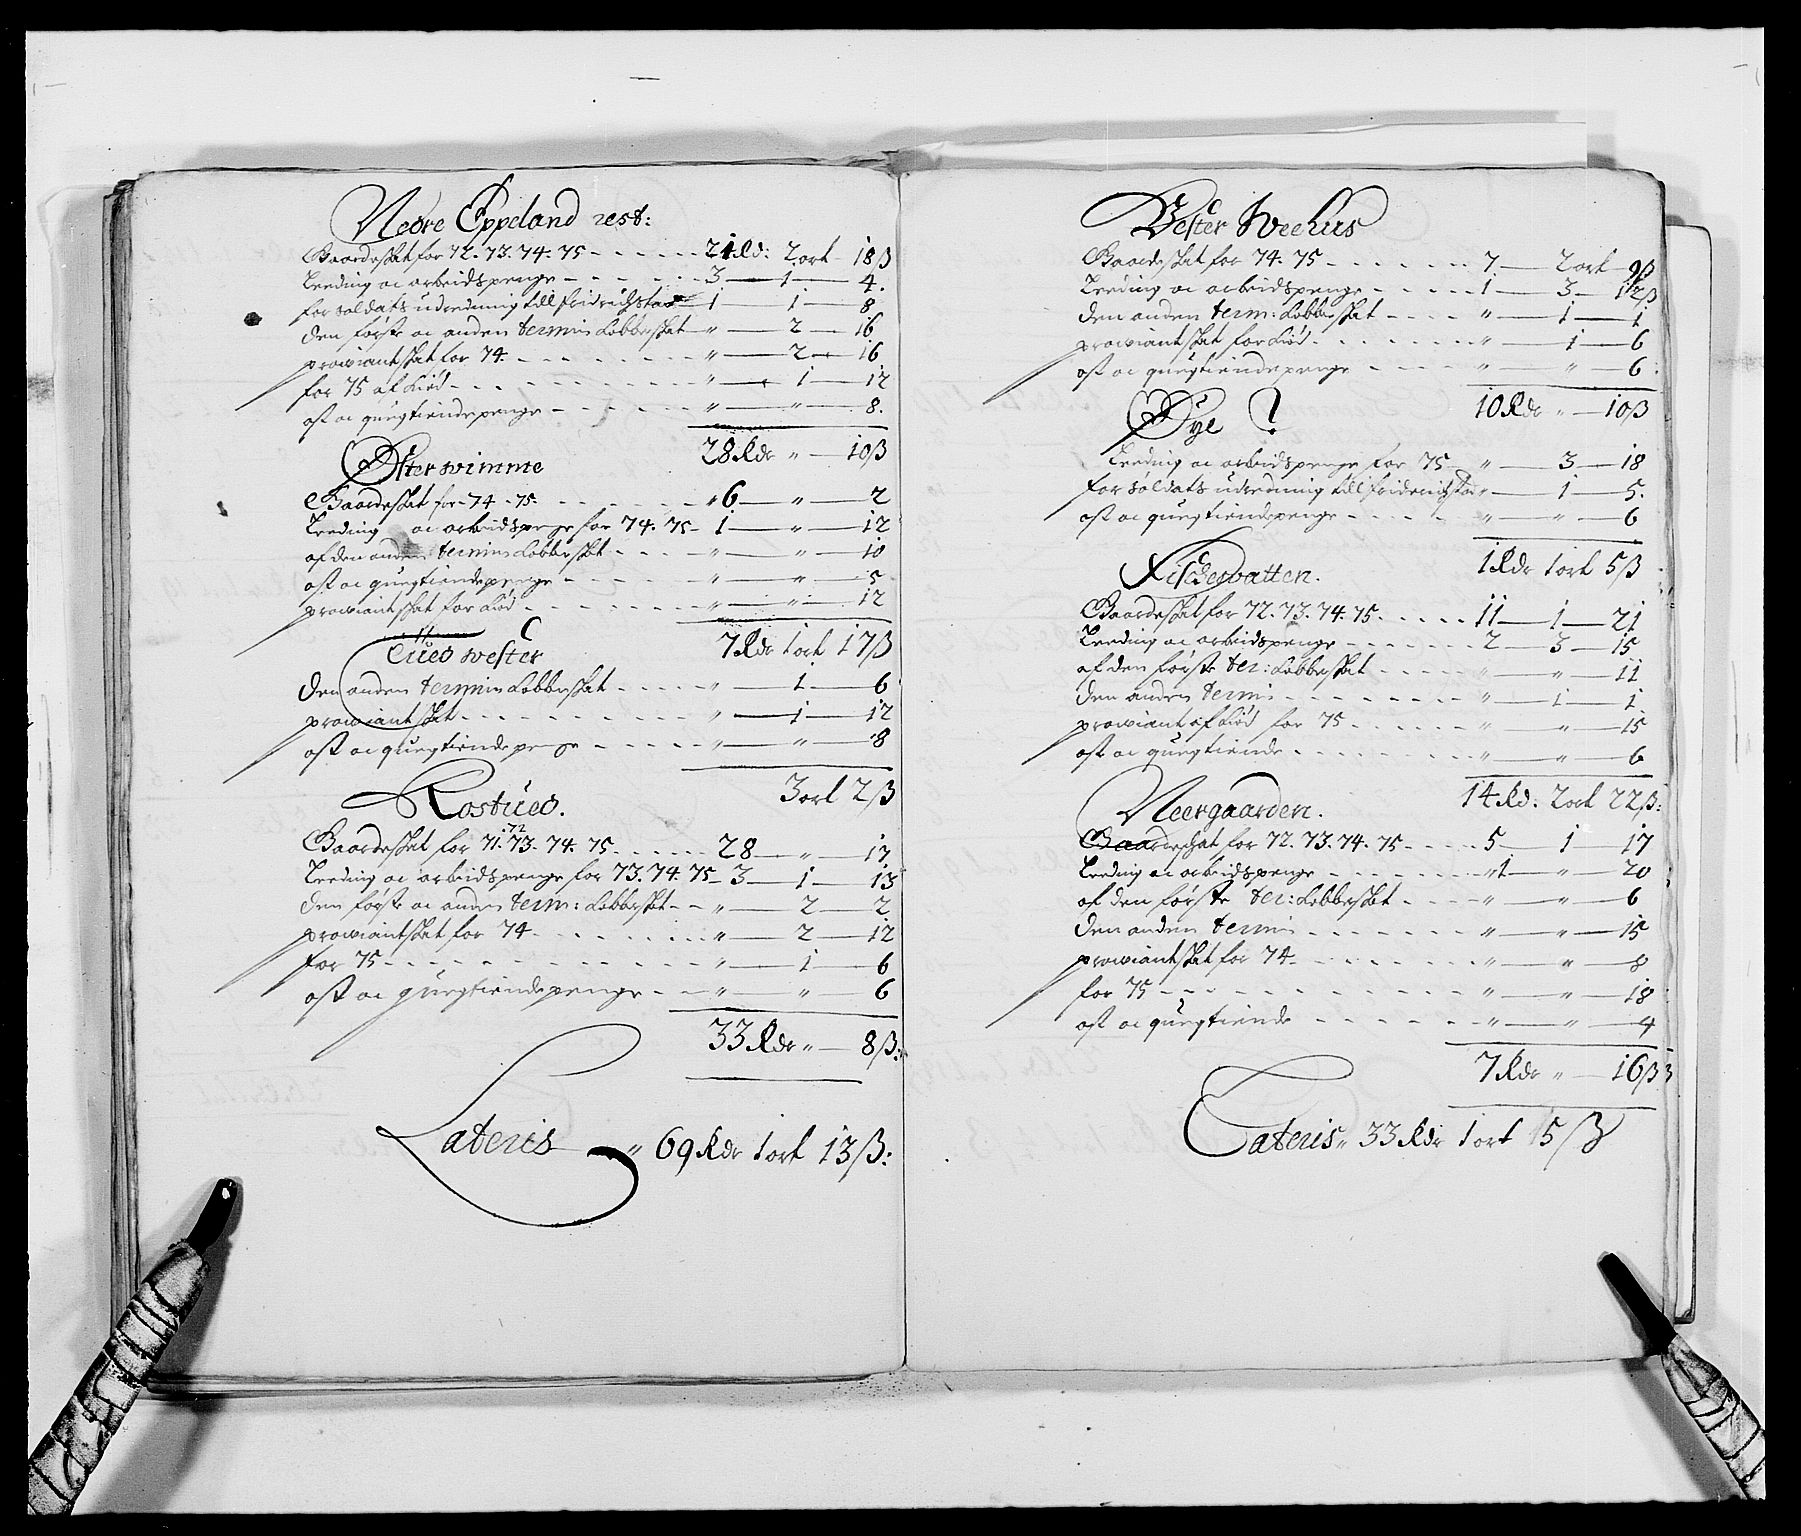 Nedre Eppeland rest:
Gaardeskat for 72. 73. 74. 75 - - - - 21 Rd: 2 ort 18 ß
Leeding oc arbeidspenge - - - - 3 — 1 — 4.
for soldats udredning till fridrichstad 1 — 1 — 8
den første oc anden termins Kobberskat — " — 2 — 16
prowiantskat for 74 - - - - " — 2 — 16
for 75 af Kiød - - - - " — 1 — 12
ost oc quegtiendepenge - - - - " — " — 8.
28 Rdr " — 10 ß
Øster wimme
Gaardeskat for 74 - 75. - - - - " 6 — " — 2
Leeding oc arbeidspenge for 74. 75 - 1 — " — 12
af den anden termins Kobberskat - - - - " — " — 10
ost oc quegtiendepenge - - - - " — " — 5
prowiantskat for Kiød - - - - " — " — 12
7 Rdr 1 ort 17 ß
wester
den anden termins Kobberskat - - - - " — 1 — 6
prowiantskat - - - - " — 1 — 12
ost oc quegtiendepenge - - - - " — " — 8
3 ort 2 ß
Rostued.
Gaardeskat for 71. 72. 73. 74. 75 - - - - 28 — " — 17
Leeding oc arbeidspenge for 73. 74. 75 - 3 — 1 — 13
den første oc anden term: Kobberskat - - " — 2 — 2
prowiantskat for 74 - - - - " — 2 — 12
for 75 - - - - " — 1 — 6
ost oc quegtiendepenge - - " — " — 6
33 Rdr " — 8 ß:
Lateris " 69 Rdr 1 ort 13 ß:
Vester Weehus
Gaardeskat for 74. 75 - - - - 7 — 2 ort — 9 ß
Leeding oc arbeidspenge - - - - 1 — 3 — 12 ß
den anden term: Kobberskat - - - - " — 1 — 1
prowiantskat for Kiød - - - - " — 1 — 6
ost oc quegtiendepenge - - - - " — " — 6:
10 Rdr " — 10 ß
Øye
Leeding oc arbeidspenge for 75 - " — 3 — 18
for soldats udredning till friderichstad " — 1 — 5.
ost oc quegtiendepenge - - - - " — " — 6
1 Rdr 1 ort 5 ß
Fischesvatten.
Gaardeskat for 72. 73. 74. 75 - - - - 11 — 1 — 21
Leeding oc arbeidspenge - - - - 2 — 3 — 15
af den første ter: Kobberskat - - - - " — " — 11
den anden termin - - - - " — 1 — 1.
prowiant af Kiød for 75 - - - - " — " — 15
ost oc quegtiende - - - - " — " — 6
14 Rd: 2 ort 22 ß:
Neergaarden.
Gaardeschat for 72. 73. 74. 75 - - - - 5 — 1 — 17
Leeding oc arbeidspenge - - - - " 1 — " — 20
af den første ter: Kobberskat - - - - " — " — 6
den anden termin - - - - " — " — 15
prowiantskat for 74 - - - - " — " — 8
for 75 - - - - " — " — 18
ost oc quegtiende - - - - " — " — 4
7 Rdr " — 16 ß
Lateris " 33 Rdr 1 ort 5 ß